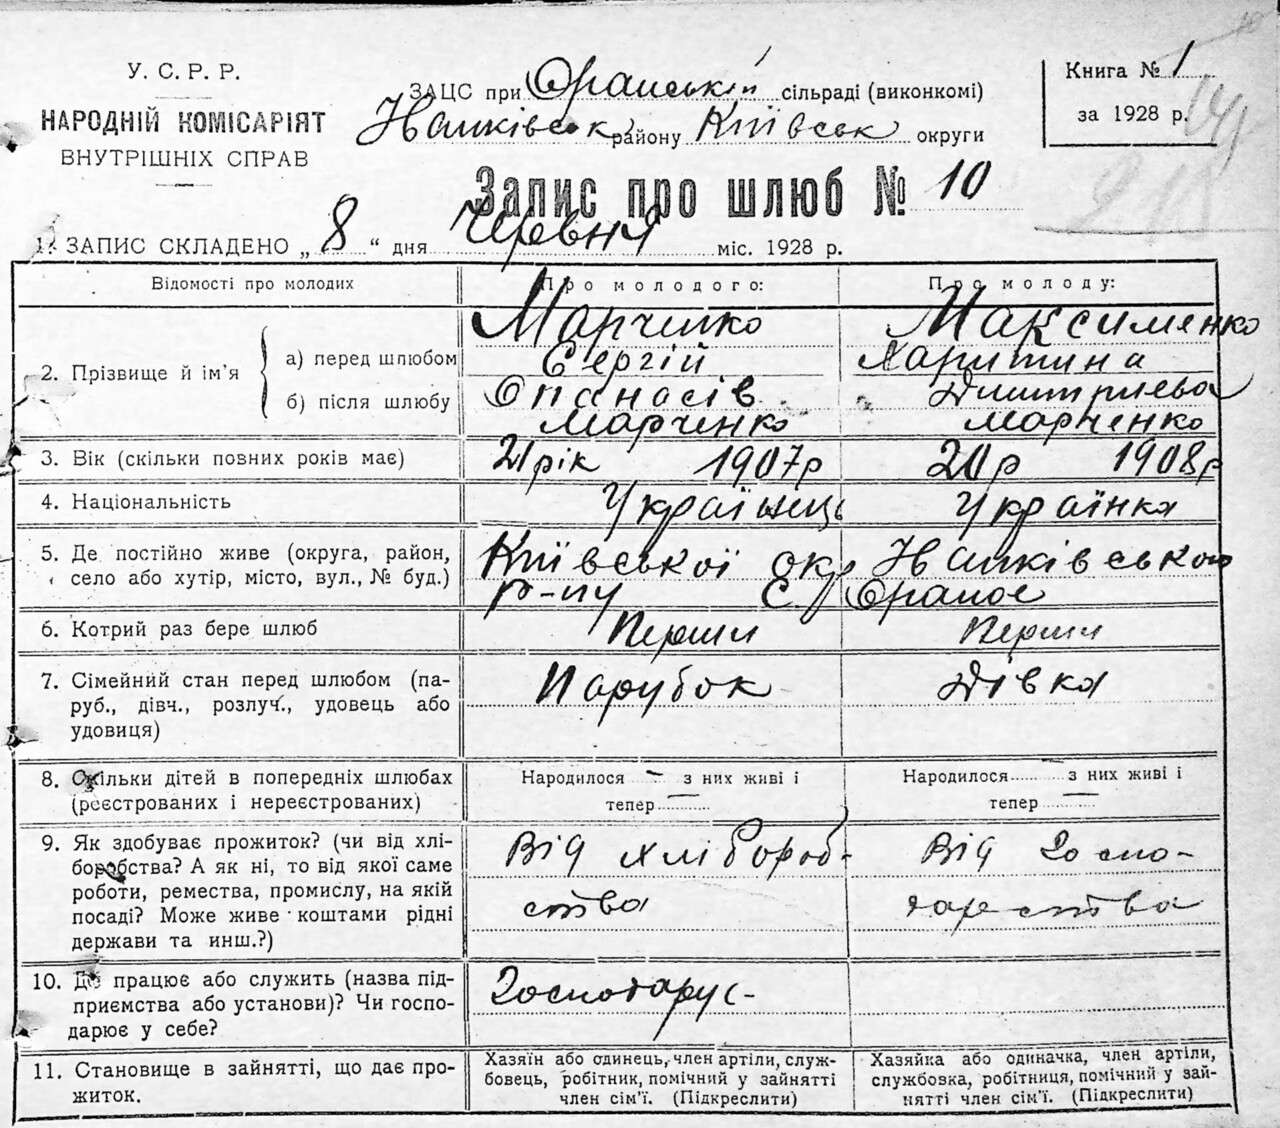 У. С. Р. Р.
НАРОДНІЙ КОМІСАРІЯТ
ВНУТРІШНІХ СПРАВ
ЗАЦС при Оранській сільраді (виконкомі)
району Київськ округи
Книга № 1
за 1928 р.
Запис про шлюб № 10
1. ЗАПИС СКЛАДЕНО „ 8 “ дня Червня міс. 1928 р.
Відомості про молодих
Про молодого:
Про молоду:
2. Прізвище й ім'я
а) перед шлюбом
б) після шлюбу
Марченко
Сергій
Опанасів
Марченко
Максименко
Харитина
Дмитрієва
Марченко
3. Вік (скільки повних років має)
21 рік 1907р
20р 1908р
4. Національність
Українець
Українка
5. Де постійно живе (округа, район,
село або хутір, місто, вул., № буд.)
Київської окр
Р-ну С. Ораное
6. Котрий раз бере шлюб
Перши
Перши
7. Сімейний стан перед шлюбом (па-
руб., дівч., розлуч., удовець або
удовиця)
Парубок
Дівка
8. Скільки дітей в попередніх шлюбах
(реєстрованих і нереєстрованих)
Народилося — з них живі і
тепер —
Народилося — з них живі і
тепер —
9. Як здобуває прожиток? (чи від хлі-
боробства? А як ні, то від якої саме
роботи, ремества, промислу, на якій
посаді? Може живе коштами рідні
держави та инш.?)
Від хлібороб-
ства
Від госпо-
дарства
10. Де працює або служить (назва під-
приємства або установи)? Чи госпо-
дарює у себе?
Господарує-
11. Становище в зайнятті, що дає про-
житок.
Хазяїн або одинець, член артілі, служ-
бовець, робітник, помічний у зайнятті
член сім'ї. (Підкреслити)
Хазяйка або одиначка, член артілі,
службовка, робітниця, помічний у зай-
нятті член сім'ї. (Підкреслити)